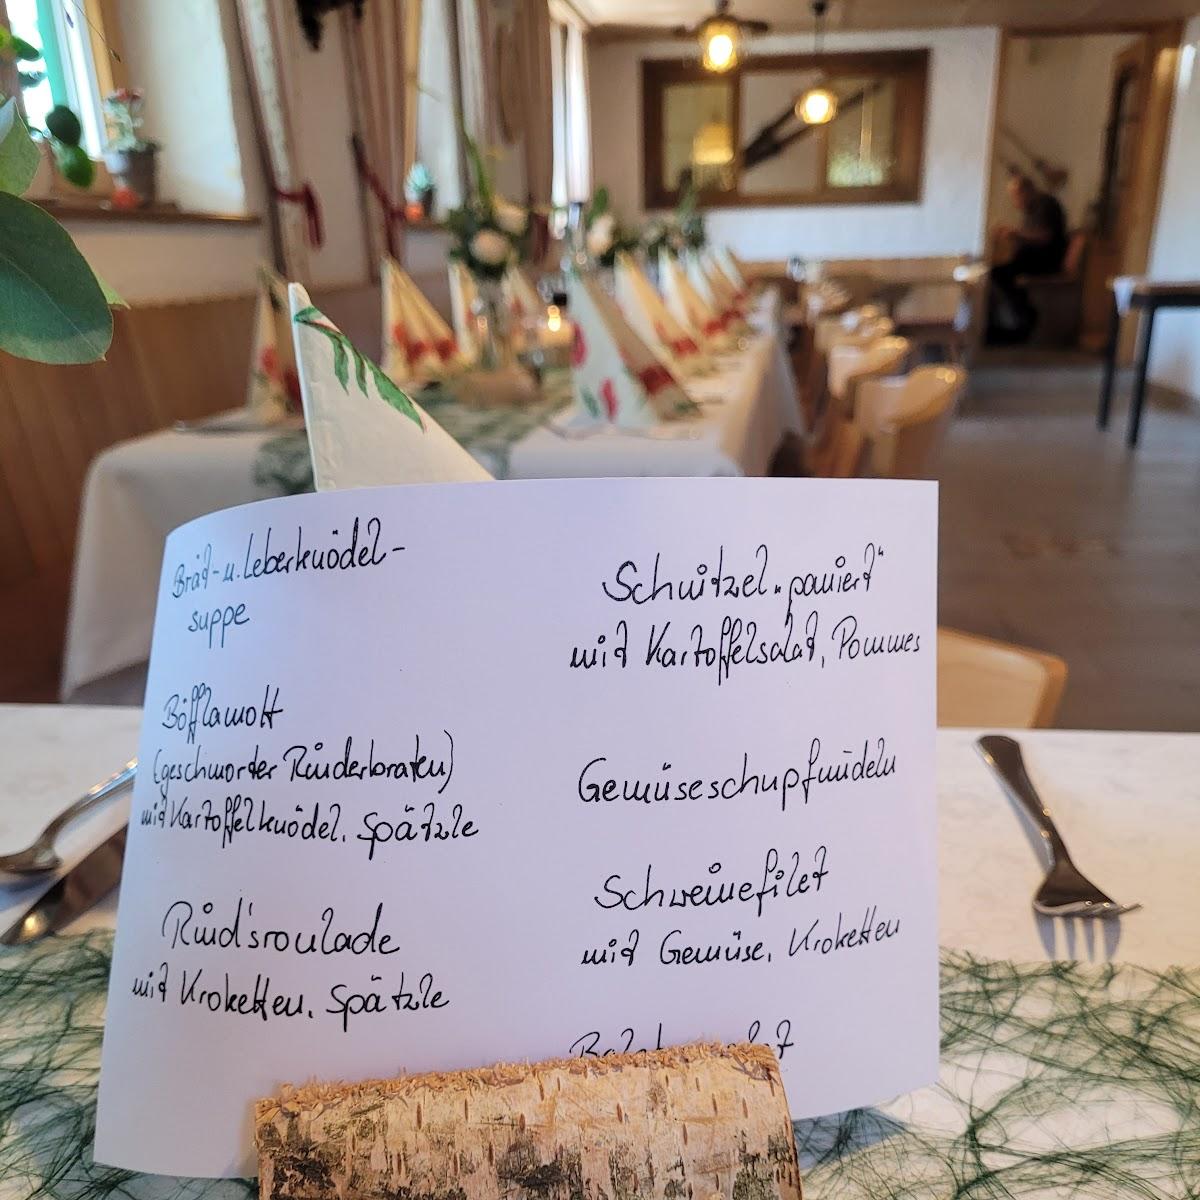 Brät-u. Leberknödel-
suppe
Böfflamott
(geschmorter Rinderbraten)
mit Kartoffelknödel, Spätzle
Rind'sroulade
mit Kroketten, Spätzle
Schnitzel „paniert"
mit Kartoffelsalat, Pommes
Gemüseschupfnudeln
Schweinefilet
mit Gemüse, Kroketten